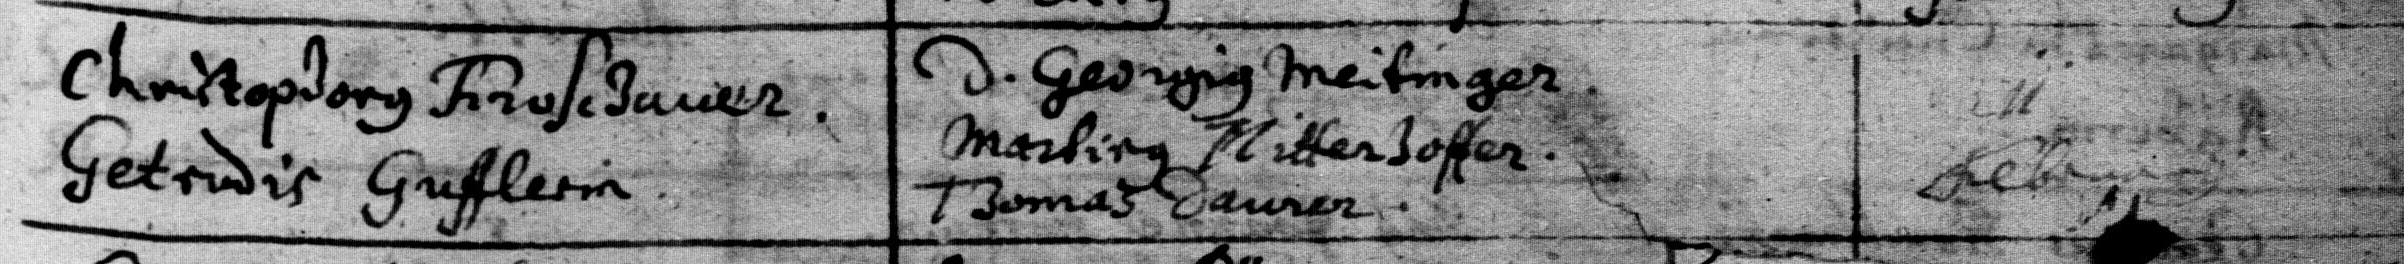 Christophorus Froschauer.
Getrudis Gufflerin
D. Georgius Meitinger.
Martinus Mitterhoffer.
Thomas Daurer.
11
Februarij